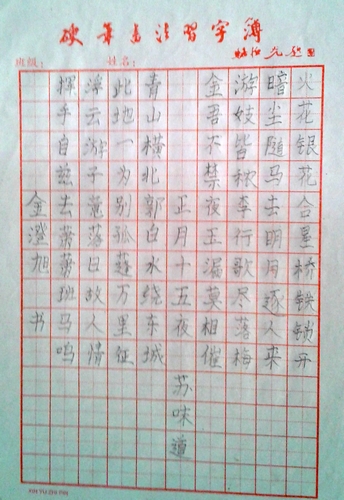 硬笔书法习字簿
班级:
姓名:
火花银花合星桥铁锁开
暗尘随马去明月逐人来
游妓皆秾李行歌尽落梅
金吾不禁夜玉漏莫相催
正月十五夜
苏味道
青山横北郭白水绕东城
此地一为别孤蓬万里征
浮云游子意落日故人情
挥手自兹去萧萧班马鸣
金澄旭
书